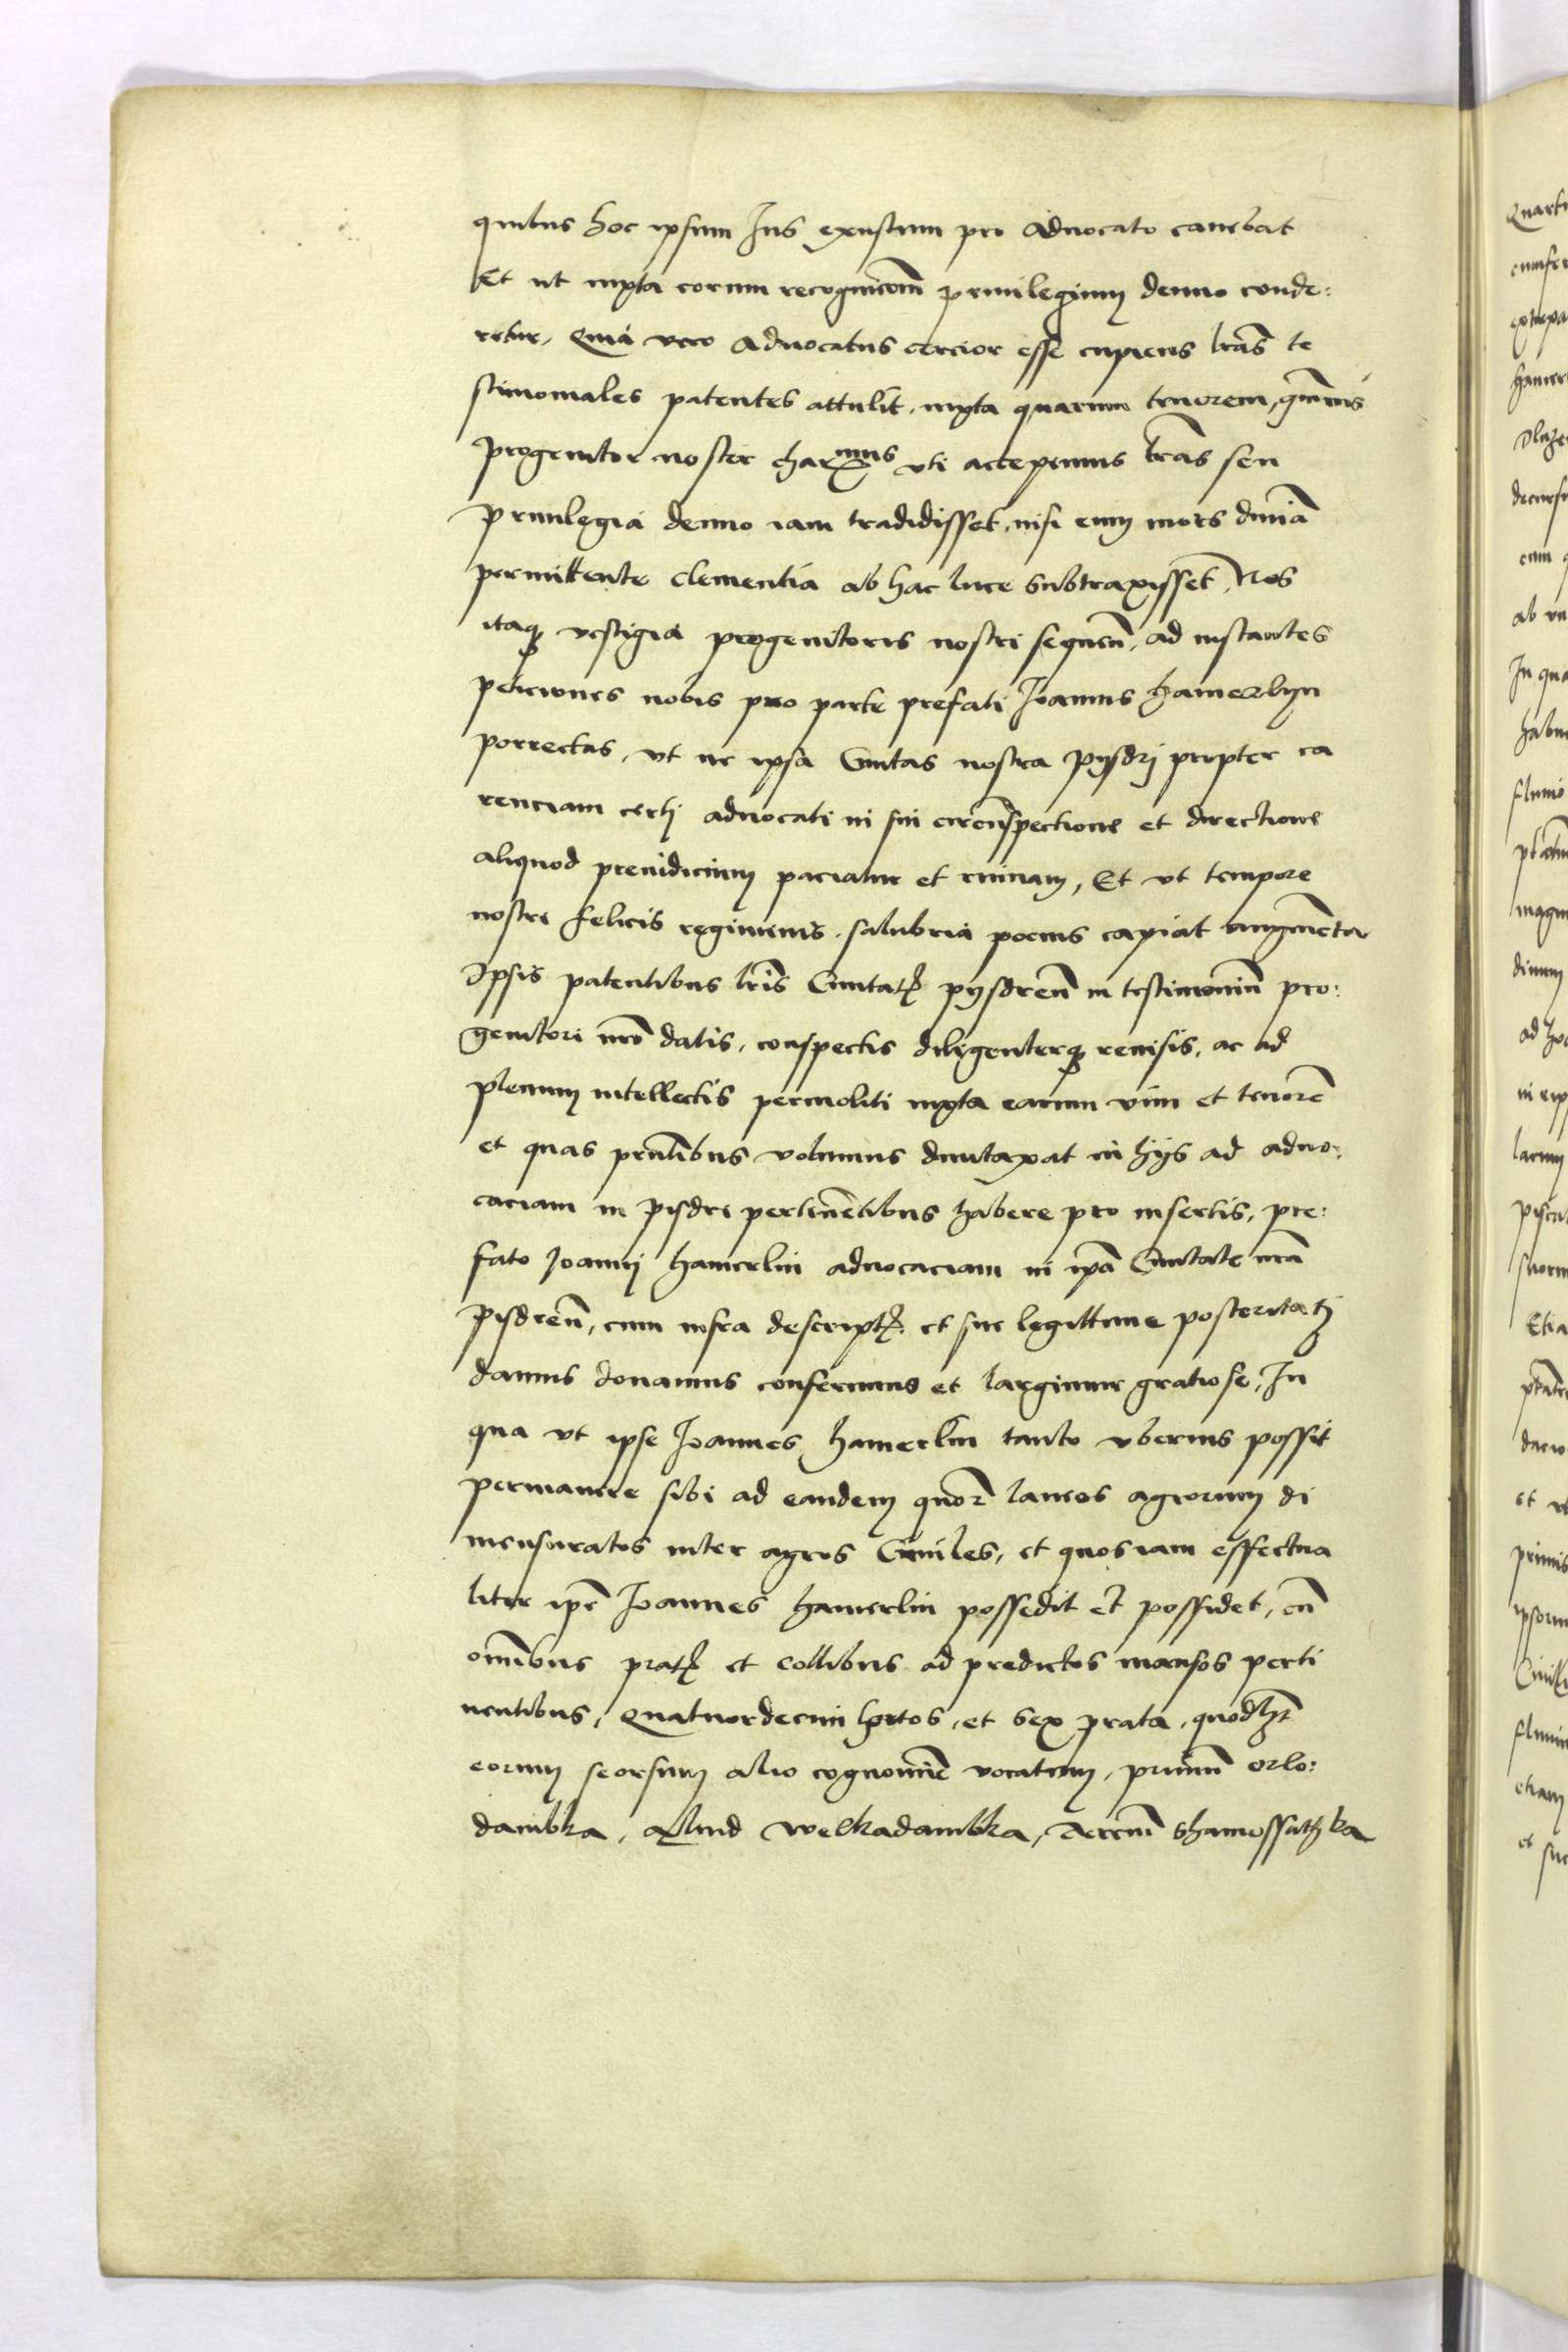 quibus hoc ipsum Ius exustum pro advocato canebat
Et ut iuxta eorum recognicoem privilegium denuo conde:
retur, Quia vero advocatus cercior esse cupiens lras te
stimoniales patentes attulit, iuxta quarum tenorem,
progenitor noster char mus uti accepimus lras seu
privilegia denuo iam tradidisset, nisi eum mors divia
permittente clementia ab hac luce subtraxisset, Nos
itaq vestigia progenitoris nostri sequen, ad instantes
peticiones nobis pro parte prefati Joannis hamerlyn
porrectas, ut ne ipsa Civitas nostra pysdrj propter ca
renciam certj advocati in sui circuspectione et directione
aliquod preiudicium paciatur et ruinam, Et ut tempore
nostri felicis regiminis, salubria pocius capiat augmenta
Ipsis patentibus lris Civitatis pysdren in testimoniu pro:
genitori nro datis, conspectis diligenterq revisis, ac ad
plenum intellectis permoliti iuxta earum vim et tenore
et quas pntibus volumus dumtaxat in hijs ad advo:
caciam in pisdri pertinetibus habere pro insertis, pre:
fato Joannj hamerlin advocaciam in ipa Civitate nra
pisdren, cum infra descriptis et sue legittime posteritatj
damus donamus conferimus et largimur gratiose, In
qua ut ipse Joannes hamerlin tanto uberius possit
permanere sibi ad eandem quor laneos agrorum di
mensuratos inter agros Civiles, et quos iam effectua
liter ipe Joannes hamerlin possedit et possidet, cu
omibus pratis et collibus ad predictos mansos perti
nentibus, quatuordecim hortos, et sex prata, quodlzt
eorum seorsum alio cognomie vocatum, primu orlo:
dambka, aliud welkadambka, terciu shamossuthka